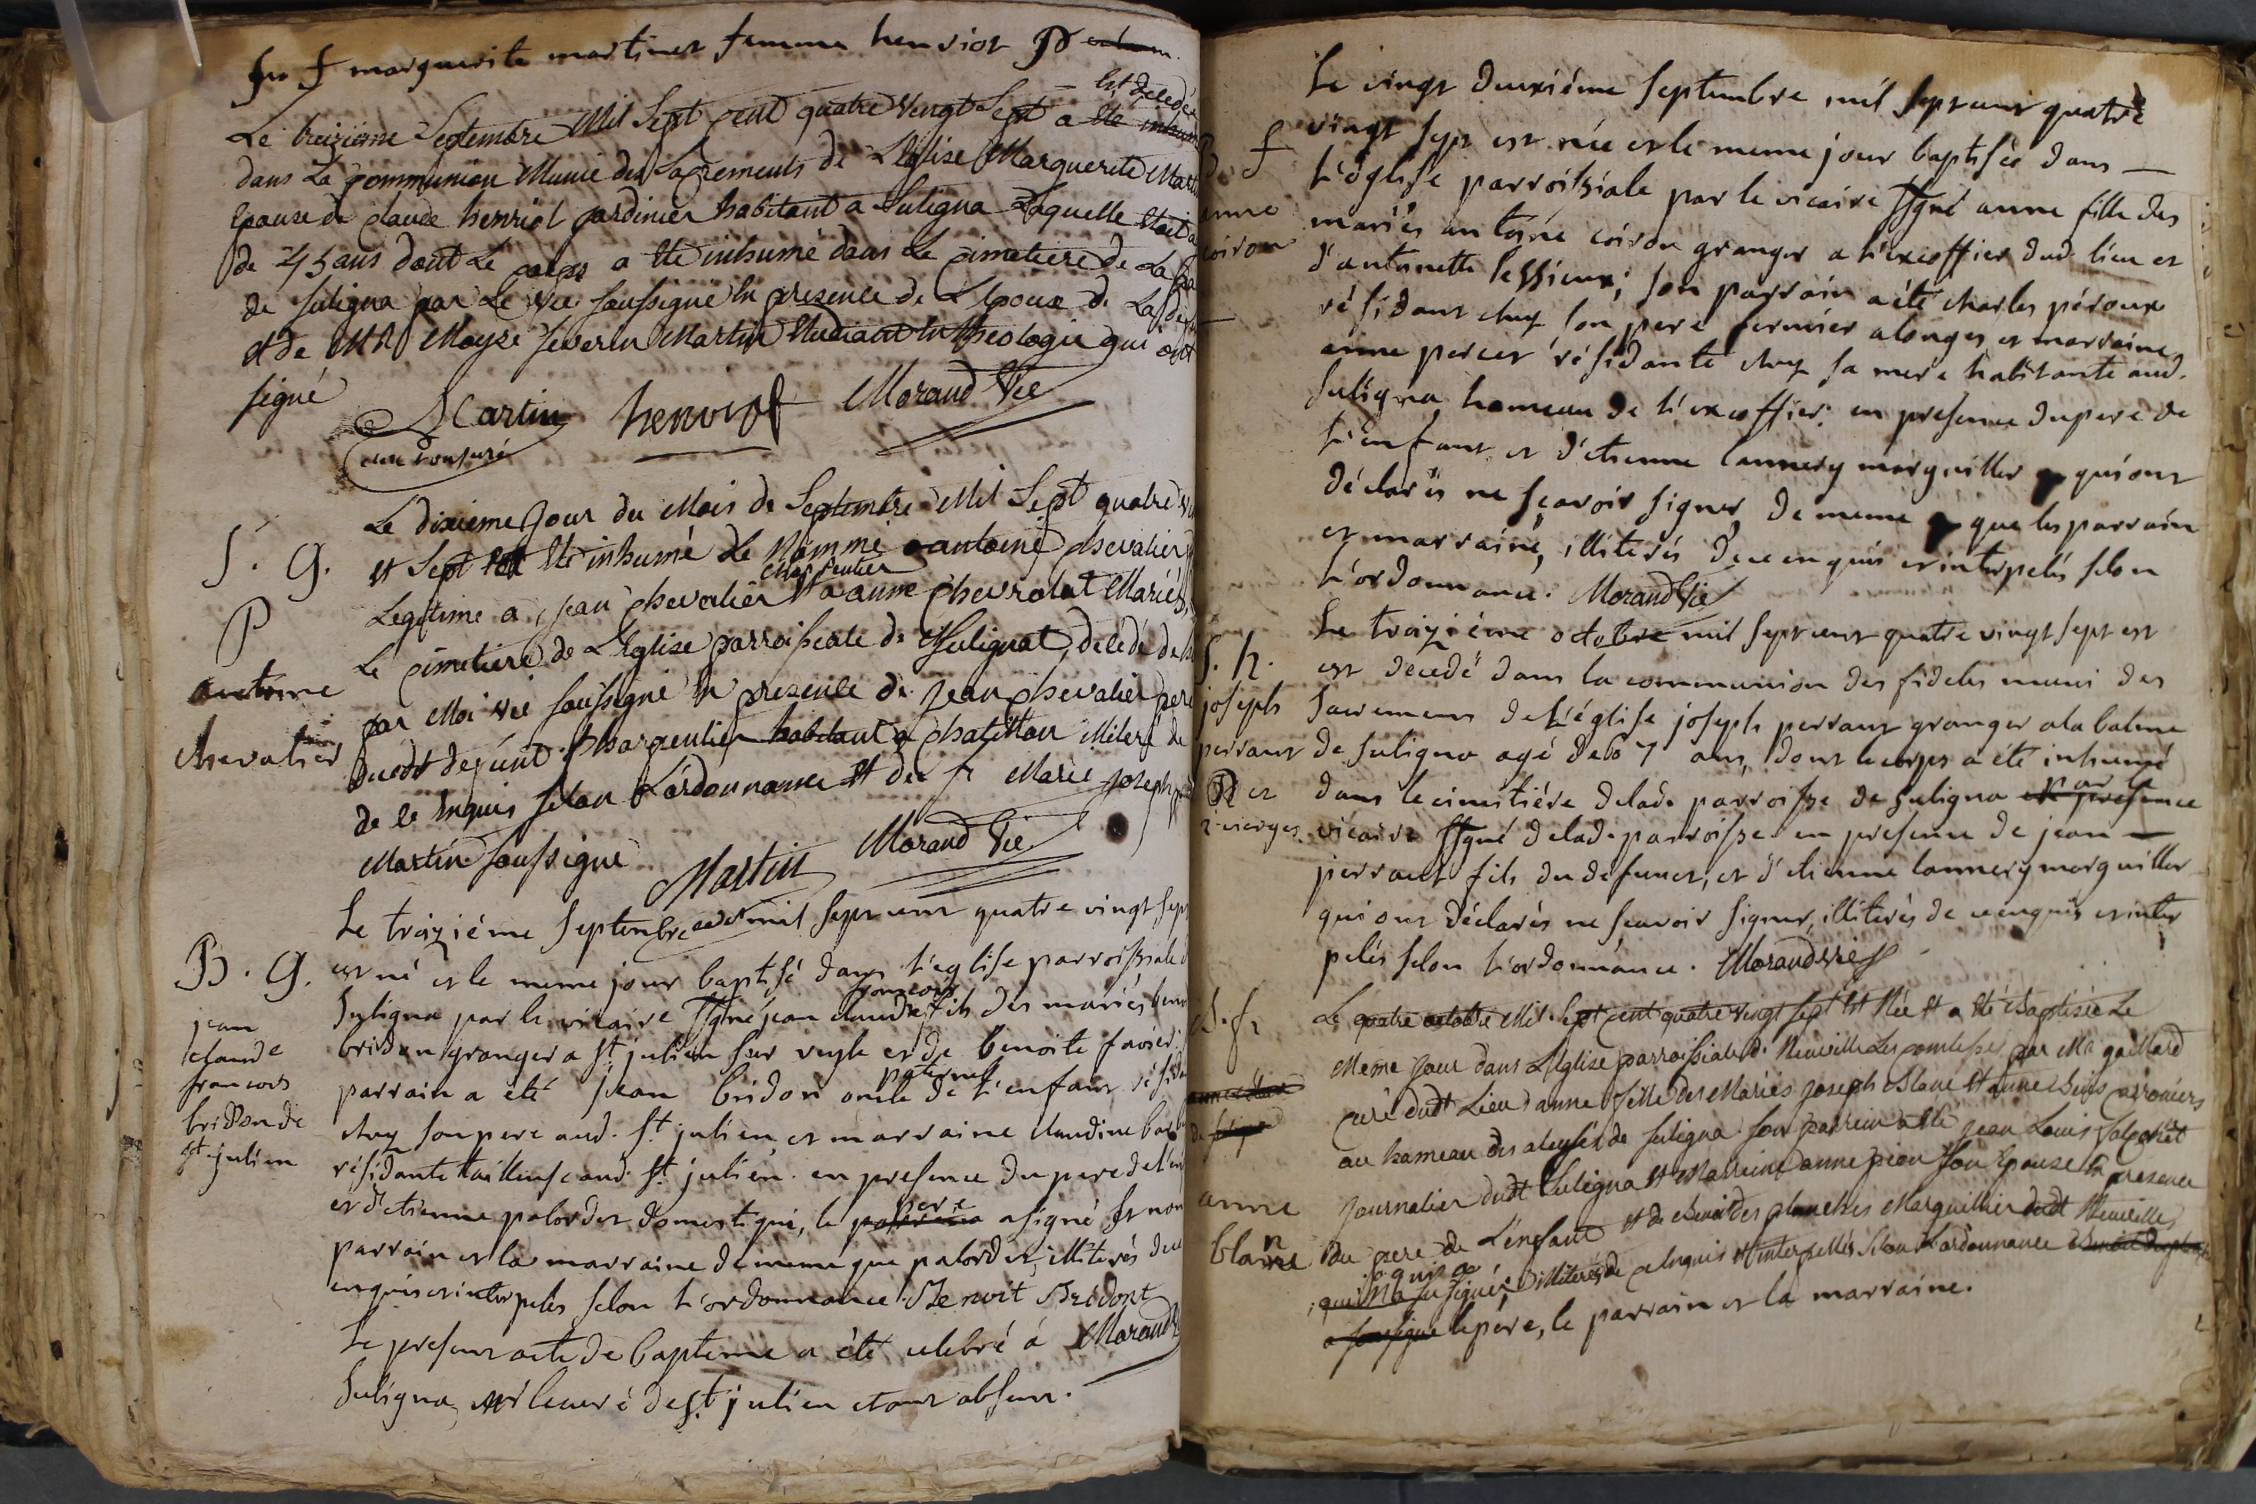 f marguerite martinet femme henriot
Le treizieme Septembre Mil Sept cent quatre vingt Sept a est decedée
dans La communion Munie des Sacrements de L'Eglise Marguerite Mart
Epouse de claude henriot jardinier habitant a Suligna Laquelle Etoit a
de 45 ans dont Le corps a Eté inhumé dans Le cimetiere de La
de Suligna par Le vic soussigné En presence de L'Epoux de La
et de Mr Moyse Severin Martin Etudiant En Theologie qui ont
signé
Martin henriot Morand Vic
S. G.
P
antoine
chevalier
Le dixieme jour du Mois de Septembre Mil Sept quatre
et Sept Eté inhumé Le Nommé antoine chevalier
charpentier
Legitime a jean chevalier et a anne chevrolat Mariés
Le cimetiere de L'Eglise parroissiale de Sulignat, décédé
par Moi vic soussigné En presence de jean chevalier pere
dudt defunt charpentier habitant a chatillon iliteré de
de ce Enquis selon L'ordonnance et de Marie joseph
Martin soussigné
Martin Morand Vic
B. G.
jean
claude
francois
bridon de
st julien
Le traiziéme Septembre mil sept cent quatre vingt sept
est né et le meme jour baptisé dans l'eglise parroissiale
francois
Suligna par le vicaire ssgné jean claude fils des mariés benoit
bridon granger a st julien sur veyle et de benoite favier
paternel
parrain a été jean bridon oncle de l'enfant résidant
chez son pere aud. st julien, et marraine claudine
résidante aud. st julien. en presence du pere de l'en
pere
et d'etienne palordet domestique, le parrain a signé et non
parrain et la marraine de meme que palordet, illiterés de ce
enquis et interpelés selon l'ordonnance. Benoit Bridont
Le present acte de bapteme a été celebré à Morand
Suligna, Mr le curé de st julien etant absent.
B. f
anne
coiron
Le vingt deuxiéme septembre mil sept cent quatre
vingt sept est née et le meme jour baptisée dans
l'église parroissiale par le vicaire ssgné anne fille des
mariés antoine coiron granger a l'excoffier dud. lieu et
d'antoinette lessieux; son parrain a été charles péroux
résidant chez son pere fermier alonges et marraine
anne percet résidante chez sa mere habitante aud.
Suligna hameau de l'excoffier: en presence du pere de
l'enfant et d'etienne lannery marguiller qui ont
déclarés ne sçavoir signer, de meme que les parrain
et marraine, illiterés de ce enquis et interpelés selon
l'ordonnance. Morand Vic
S. h.
joseph
perraut
R et
2 vierges.
Le traiziéme octobre mil sept cent quatre vingt sept est
est decedé dans la communion des fideles muni des
sacremens de l'église joseph perraut granger a la balme
de Suligna agé de 67 ans, dont le corps a été inhumé
dans le cimitiére de lad. parroisse de Suligna en presence par le
vicaire ssgné de lad. parroisse en presence de jean
perraut fils du defunct, et d'etienne lannery marguiller
qui ont déclarés ne sçavoir signer, illiterés de ce enquis et inter
pelés selon l'ordonnance. Morand vic
B. f.
anne
blanc
Le quatre octobre Mil Sept cent quatre vingt Sept Est Née et a été Baptisée Le
Meme jour dans L'Eglise parroissiale de Neuville Les comtesses par Mr gaillard
curé dudt Lieu anne fille des Mariés joseph Blanc et anne
au hameau des de Suligna son parrein a Eté jean Louis
journalier dudt Suligna et Marreine anne pion son Epouse En presence
du pere de L'enfant et de Benoit des planches Marguillier dudt Neuville
qui a signé illiterés de ce Enquis et interpellés selon L'ordonnance
a soussigné le pere, le parrain et la marraine.